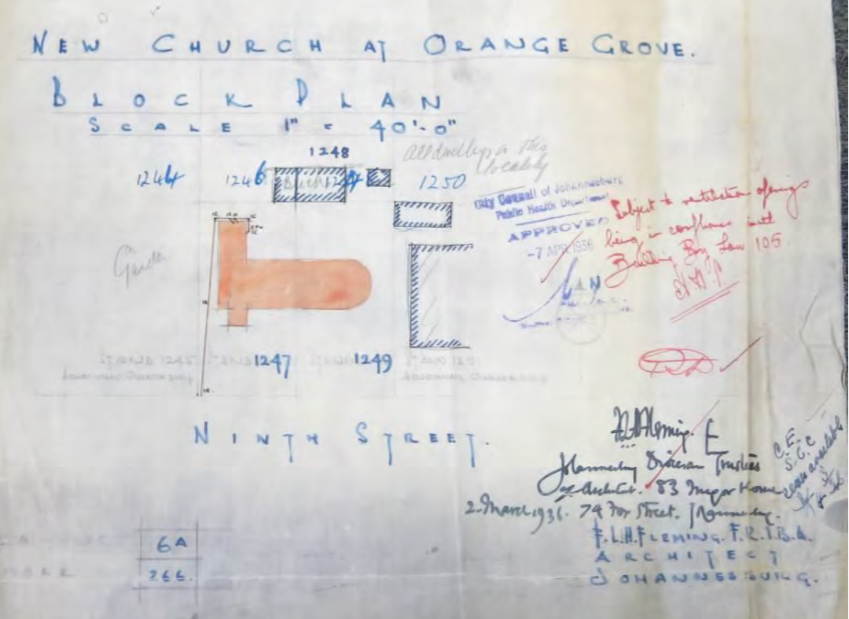 NEW CHURCH AT ORANGE GROVE.
BLOCK PLAN
SCALE 1" = 40'-0"
1248
All dwellings in this
locality
1244 1246 1250
City Council of Johannesburg
Public Health Department
APPROVED
-7 APR 1936
Subject to ventilation openings
being in conformance with
Building Bye Law 105.
Garden
N
1247 1249
STAND 1245 STAND STAND STAND 1251
NINTH STREET.
F.L.H. Fleming.
Johannesburg Diocesan Trustees
Architect. 83 Major House
2. March 1936. 74 Fox Street. Johannesburg.
C.E.
F.L.H. FLEMING. F.R.I.B.A.
ARCHITECT
JOHANNESBURG.
6A
266.